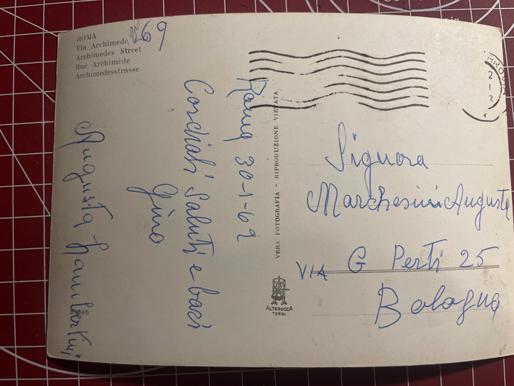 ROMA
Via Archimede
Archimedes Street
Rue Archimède
Archimedesstrasse
69
Roma 30-1-69
Cordiali Saluti e baci
Gino
Augusta Lambertini
VERA FOTOGRAFIA - RIPRODUZIONE VIETATA
ALTEROCCA
TERNI
Signora
Marchesini Augusta
VIA G Perti 25
Bologna